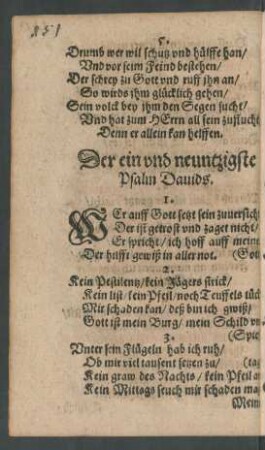 851
5.
Drumb wer wil schutz vnd hülffe han/
Vnd vor seim Feind bestehen/
Der schrey zu Gott vnd ruff jhn an/
So wirds jhm glücklich gehen/
Sein volck bey jhm den Segen sucht/
Vnd hat zum HErrn all sein zuflucht
Denn er allein kan helffen.
Der ein vnd neuntzigste
Psalm Dauids.
1.
WEr auff Gott setzt sein zuuersich
Der ist getrost vnd zaget nicht/
Er spricht/ ich hoff auff meine
Der hilfft gewiß in aller not. (Got
2.
Kein Pestilentz/ kein Jägers strick/
Kein list/ kein Pfeil/ noch Teuffels tück
Mir schaden kan/ deß bin ich gwiß/
Gott ist mein Burg/ mein Schild vn
3. (Spie
Vnter sein Flügeln hab ich ruh/
Ob mir viel tausent setzen zu/ (tag
Kein graw des Nachts/ kein Pfeil a
Kein Mittags seuch mir schaden ma
Mein